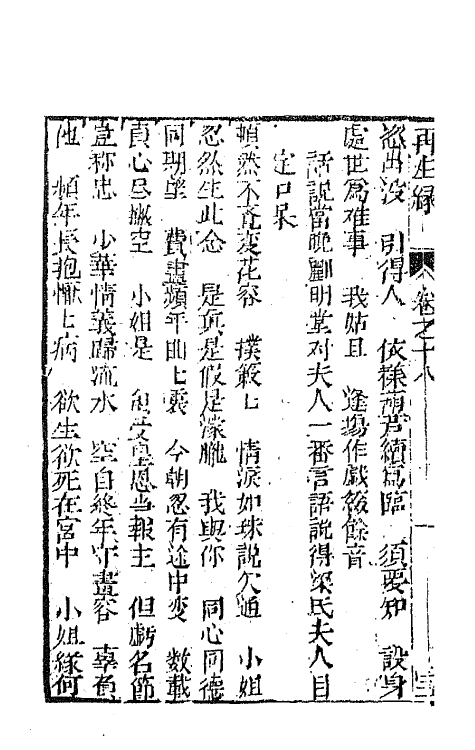 再生緣 卷之十八
怒出沒 引得人 依樣葫蘆續寫臨 須要知 設身
處世為难事 我姑且 逢塲作戲綴餘音
話說當晚酈明堂对夫人一番言語說得梁氏夫人目
定口呆
頓然不覚変花容 撲簌七 情淚如珠說欠通 小姐
忽然生此念 是真是假是濛朧 我與你 同心同德
同期望 費盡頻年曲七衷 今朝忽有途中变 数載
貞心尽撇空 小姐是 皇恩当報主 但虧名節
豈称忠 少華情義歸流水 空自終年守畫容 辜負
他 頻年長抱懨七病 欲生欲死在宮中 小姐緣何